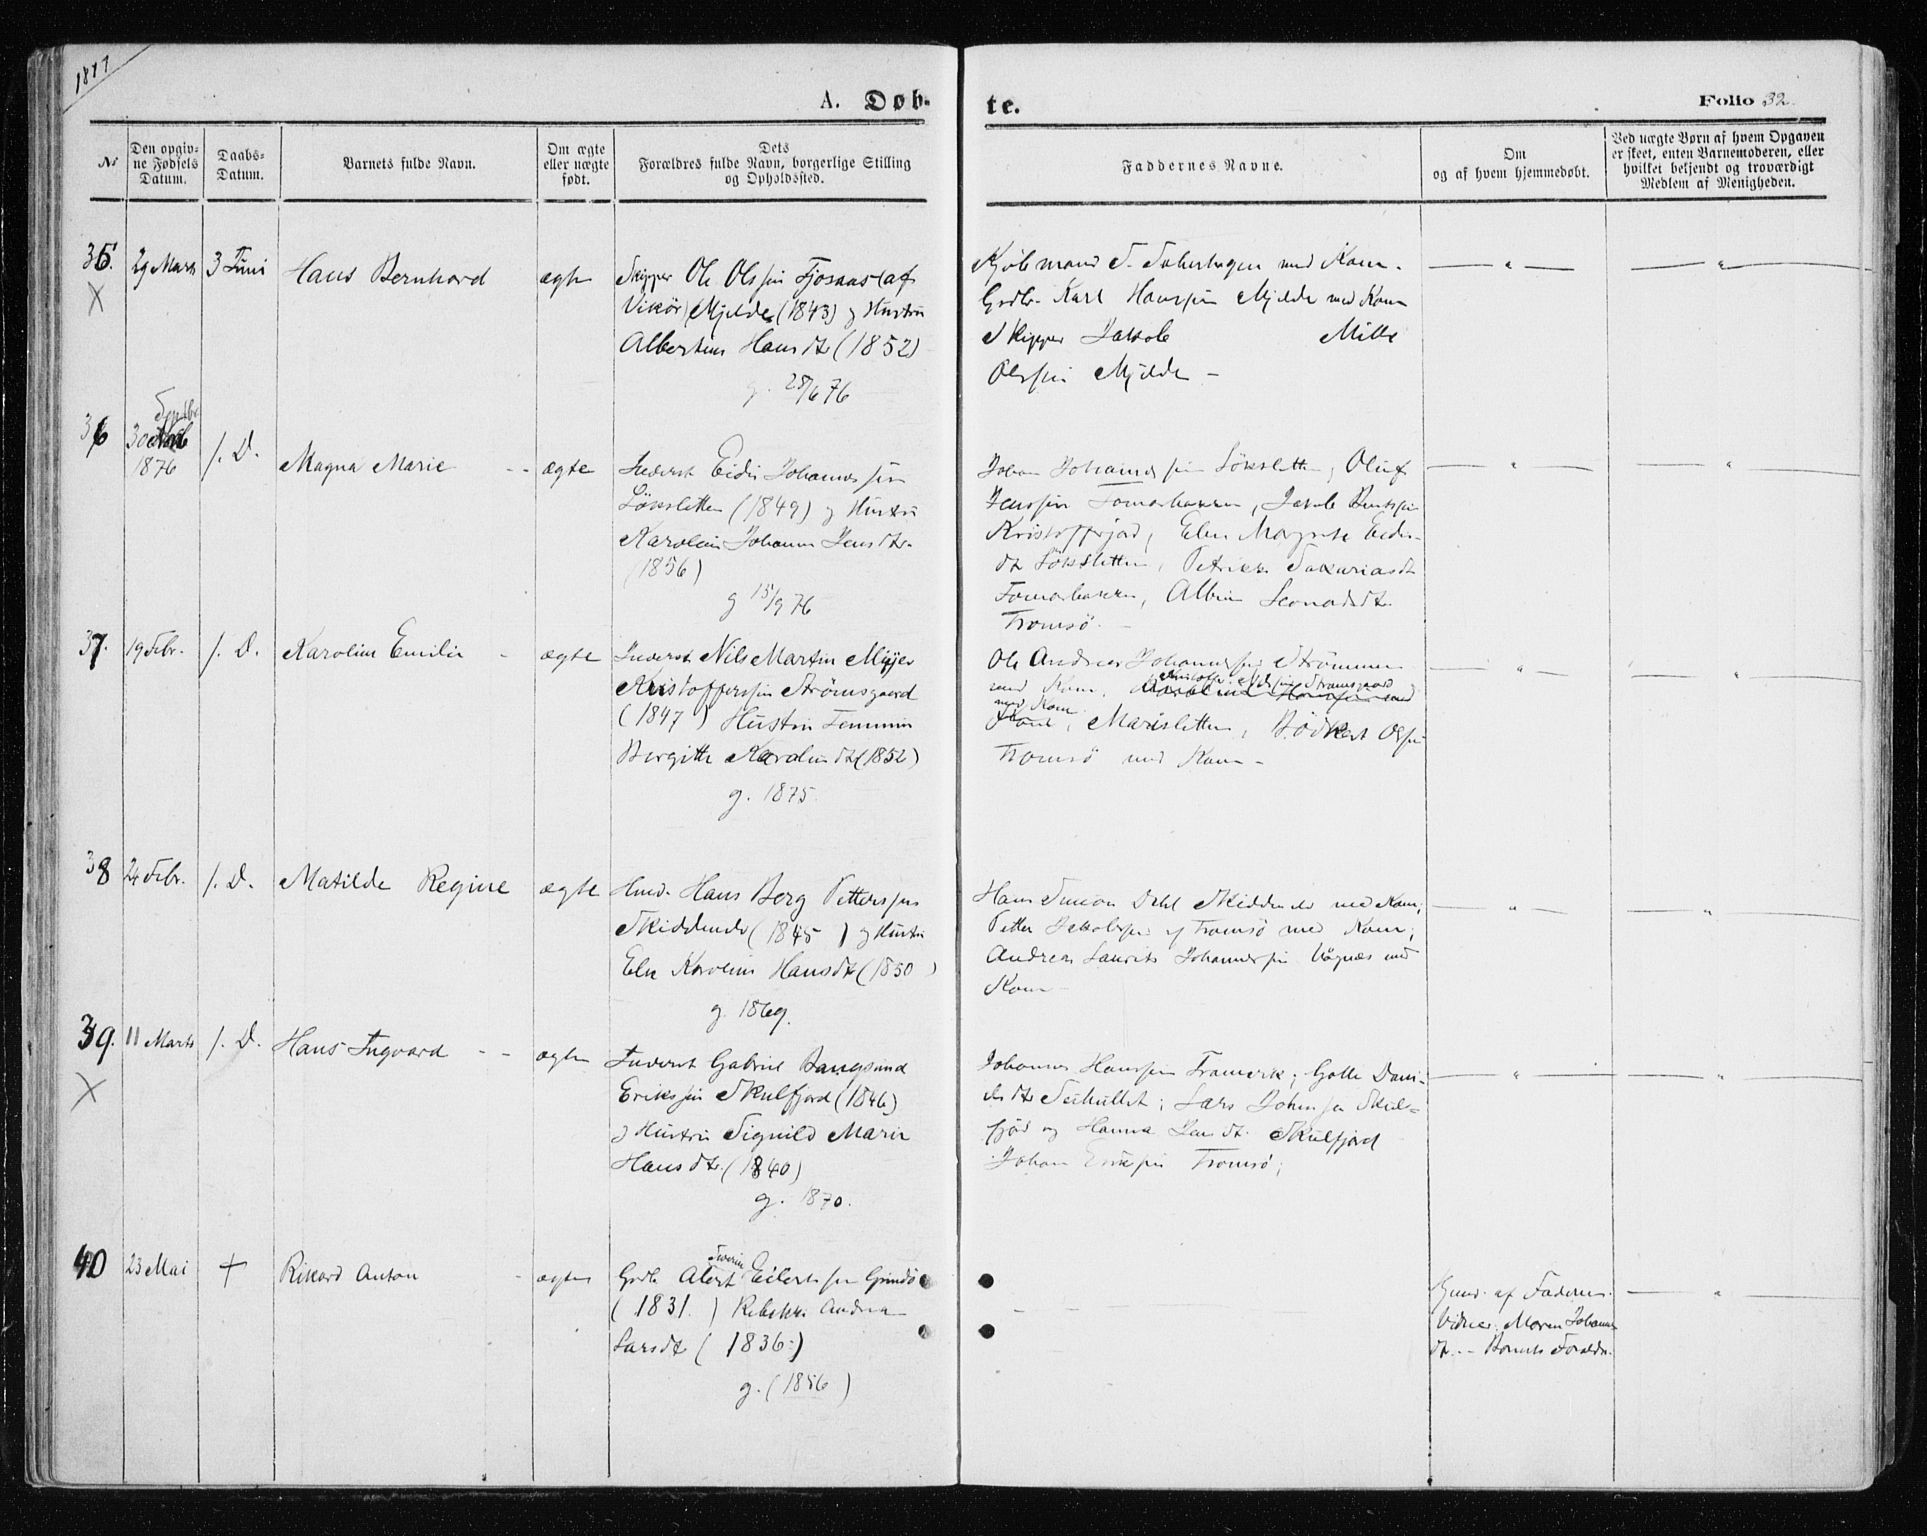 1877
A. Døb-
te.
Folio 32.
No
Den opgiv-
ne Fødsels
Datum.
Daabs-
Datum.
Barnets fulde Navn.
Om ægte
eller uægte
født.
Dets
Forældres fulde Navn, borgerlige Stilling
og Opholdssted.
Faddernes Navne.
Om
og af hvem hjemmedøbt.
Ved uægte Børn af hvem Opgaven
er skeet, enten Barnemoderen, eller
hvilket bekjendt og troværdigt
Medlem af Menigheden.
35. 29 Marts 3 Juni Hans Bernhard ægte
X
Skipper Ole Olssen Fjosnas (af
Vikør) Mjelde (1843) og Hustru
Albertine Hansdtr (1852)
g. 28/6 76
med Kone.
Grdbr. Karl Hanssen Mjelde med Kone
Skipper Jakob Mille
Olssen Mjelde -
36 30 Septbr
1876 s. D. Magna Marie -- ægte
Inderst Johannessen
Løksletten (1849) og Hustru
Karoline Johanna Jensdtr.
(1856)
g 15/9 76
Johan Johannessen Løksletten, Oluf
Jenssen Tomasbakken, Jakob
Kristofferjord, Elen Margrete
dtr Løksletten, Petrikke Sakariasdtr
Tomasbakken, Albine Leonadsdtr
Tromsö. -
37. 19 Febr. s. D. Karoline Emilie - ægte
Inderst Nils Martin Mijer
Kristofferssen Strömsgaard
(1847) Hustru
Birgitte Karolinedtr (1852)
g. 1875.
Ole Andreas Johannessen Strömmen
med Kone, Kristoffer Nilssen Strømsgaard
med Kone
Kone, Marisletten, Bödker Olsen
Tromsö med Kone -
38 24 Febr. s. D. Matilde Regine ægte
Hmd. Hans Berg Pettersen
(1845) og Hustru
Elen Karoline Hansdtr (1850)
g. 1869.
Hans Simon Dahl med Kone,
Petter Jakobsen af Tromsö med Kone;
Andreas Laurits Johannessen Vågnæs med
Kone -
39. 11 Marts s. D. Hans Ingvard -- ægte
X
Inderst Gabriel Bangsund
Erikssen Skulfjord (1846)
og Hustru Signild Marie
Hansdtr. (1840)
g. 1870.
Johannes Hanssen Tramerk; Golla Dani-
elsdtr; Lars Johnsen Skul-
fjord og Hanna Jensdtr. Skulfjord
Johan Erikssen Tromsö;
40 23 Mai + Rikard Anton - ægte
Severin
Grdb Albert Eilertssen Grindö
(1831.) Rebekka Andrea
Larsdtr (1836.)
g. (1856)
- - -
af Faderen.
Vidner. Maren Johannes
dtr. - Barnets Foraldre.